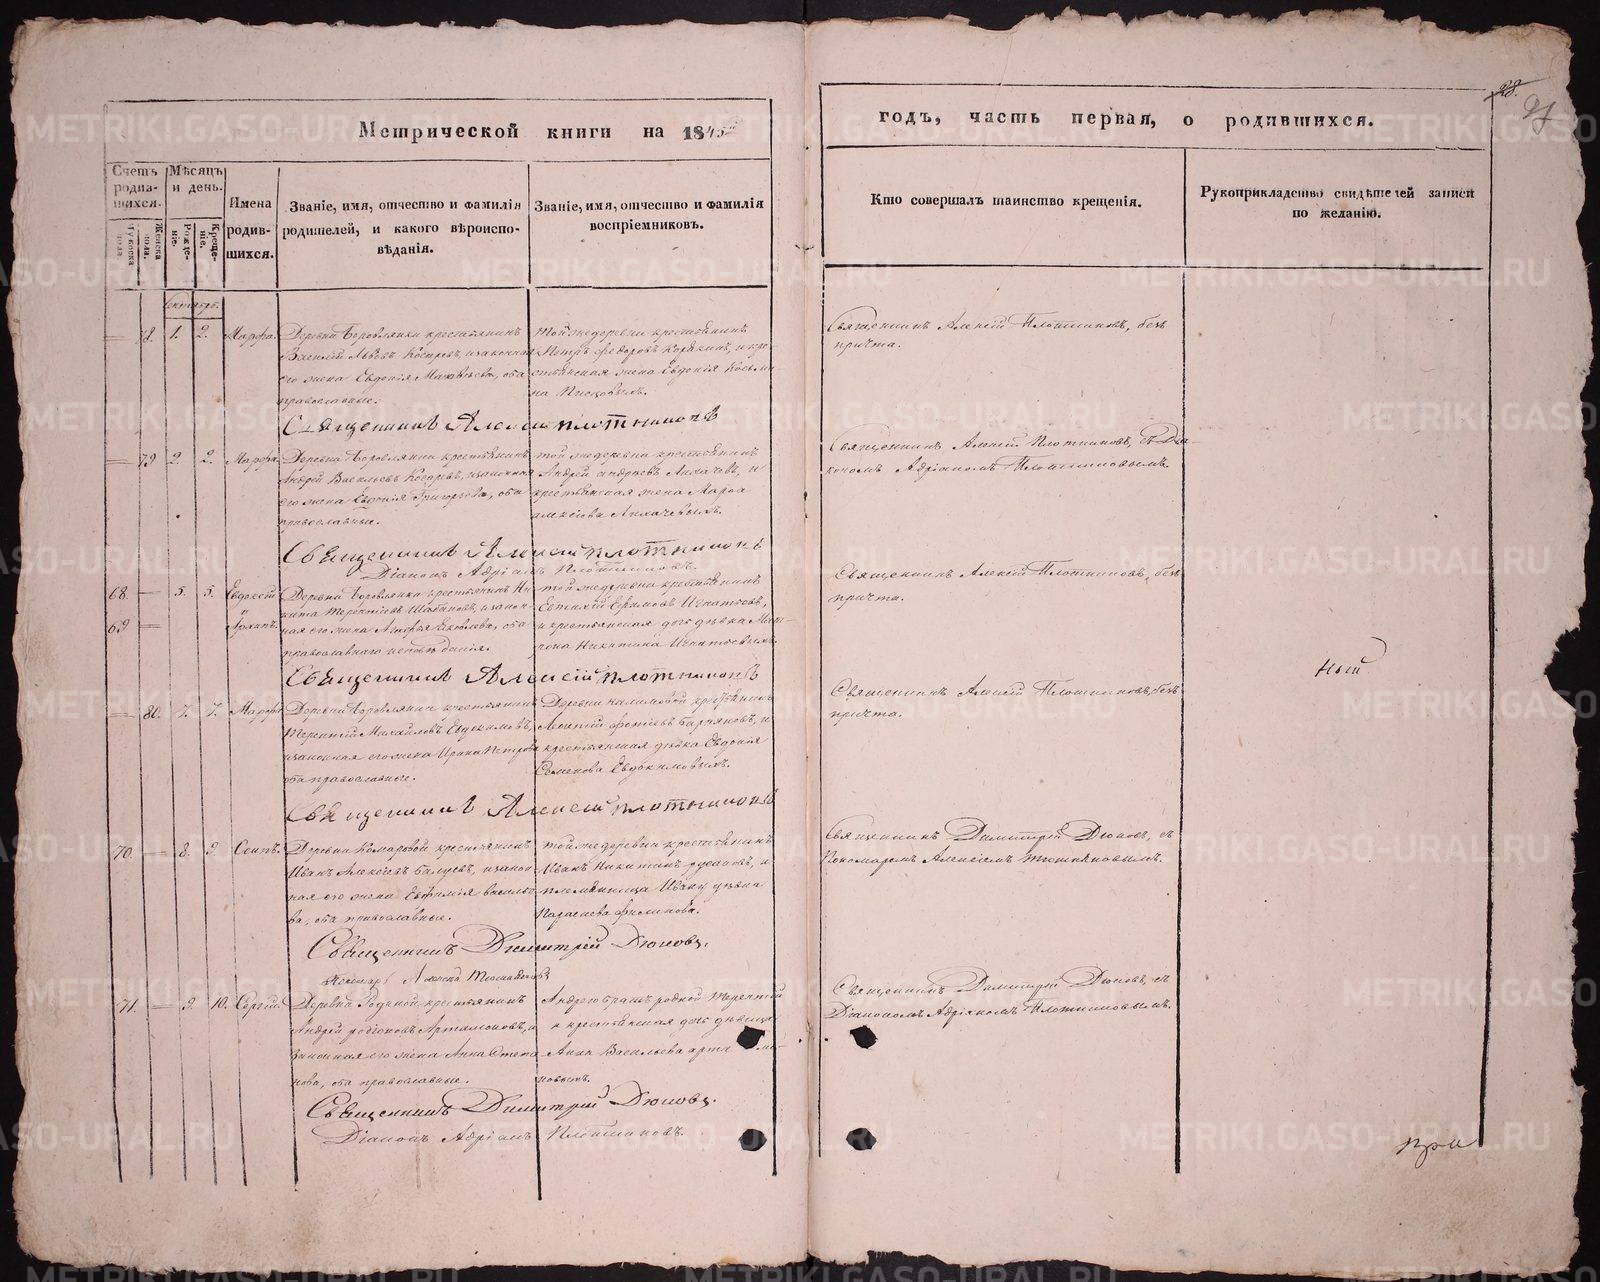 Метрической книги на 1845
годъ, часть первая, о родившихся.
28.
Счетъ родив-шихся.
Мужеска пола.
Женска пола.
Мѣсяцъ и день.
Рожде-нiе.
Креще-нiе.
Имена родив-шихся.
Званiе, имя, отчество и фамилiя
родителей, и какого вѣроиспо-
вѣданiя.
Званiе, имя, отчество и фамилiя
воспрiемниковъ.
Кто совершалъ таинство крещенiя.
Рукоприкладство свидѣтелей записи
по желанiю.
Сентябрь.
— 78. 1. 2. Марфа.
Деревни Боровлянки крестьянинъ
Василiй Львовъ Косаревъ, и законная
его жена Евдокiя Матвѣева, оба
православные.
Той же деревни крестьянинъ
Петръ Федоровъ Корякинъ, и кре-
стьянская жена Евдокiя Косьми-
на
Священникъ Алексiй Плотниковъ, безъ
причта.
Священникъ Алексiй Плотниковъ
— 79 2. 2. Марфа.
Деревни Боровлянки крестьянинъ
Андрей Васильевъ Косаревъ, и законная
его жена Евдокiя Григорьева, оба
православные.
той же деревни крестьянинъ
Андрей Андреевъ Лихачевъ, и
крестьянская жена Марфа
Алексiева Лихачевыхъ.
Священникъ Алексiй Плотниковъ, съ Дiа-
кономъ Адрiаномъ Плотниковымъ.
Священникъ Алексiй Плотниковъ
Дiаконъ Адрiанъ Плотниковъ.
68. — 5. 5. Евдокей
69 — Архипъ.
Деревни Боровлянки крестьянинъ Ни-
кита Терентьевъ Шабановъ, и закон-
ная его жена Агафья Яковлева, оба
православнаго исповѣданiя.
той же деревни крестьянинъ
Евтихiй Ефимовъ Игнатьевъ,
и крестьянская дочь дѣвка Мат-
рона Никитина Игнатьевыхъ.
Священникъ Алексiй Плотниковъ, безъ
причта.
Священникъ Алексiй Плотниковъ
ный
— 80. 7. 7. Марфа
Деревни Боровлянки крестьянинъ
Терентiй Михайловъ Евдокимовъ,
и законная его жена Ирина Петрова
оба православные.
Деревни Калимовой крестьянинъ
Леонтiй Фотiевъ Баряковъ, и
крестьянская дѣвка Евдокiя
Семенова Евдокимовыхъ.
Священникъ Алексiй Плотниковъ, безъ
причта.
Священникъ Алексiй Плотниковъ
70. — 8. 9. Осипъ.
Деревни Комаровой крестьянинъ
Иванъ Алексiевъ Балуевъ, и закон-
ная его жена Евфимiя Василье-
ва, оба православные.
той же деревни крестьянинъ
Иванъ Никитинъ Русаковъ, и
племянница Ивану дѣвка
Параскева Филипова.
Священникъ Димитрiй Дюковъ, съ
Пономаремъ Алексiемъ
Священникъ Димитрiй Дюковъ.
Пономарь Алексей
71. — 9. 10. Сергiй.
Деревни Родиной крестьянинъ
Андрей Родiоновъ Артамоновъ, и
законная его жена Анна Степа-
нова, оба православные.
Андрею братъ родной Терентiй
и крестьянская дочь дѣвица
Анна Васильева Артамо-
новыхъ.
Священникъ Димитрiй Дюковъ, съ
Дiакономъ Адрiаномъ Плотниковымъ.
Священникъ Димитрiй Дюковъ.
Дiаконъ Адрiанъ Плотниковъ.
при
METRIKI.GASO-URAL.RU